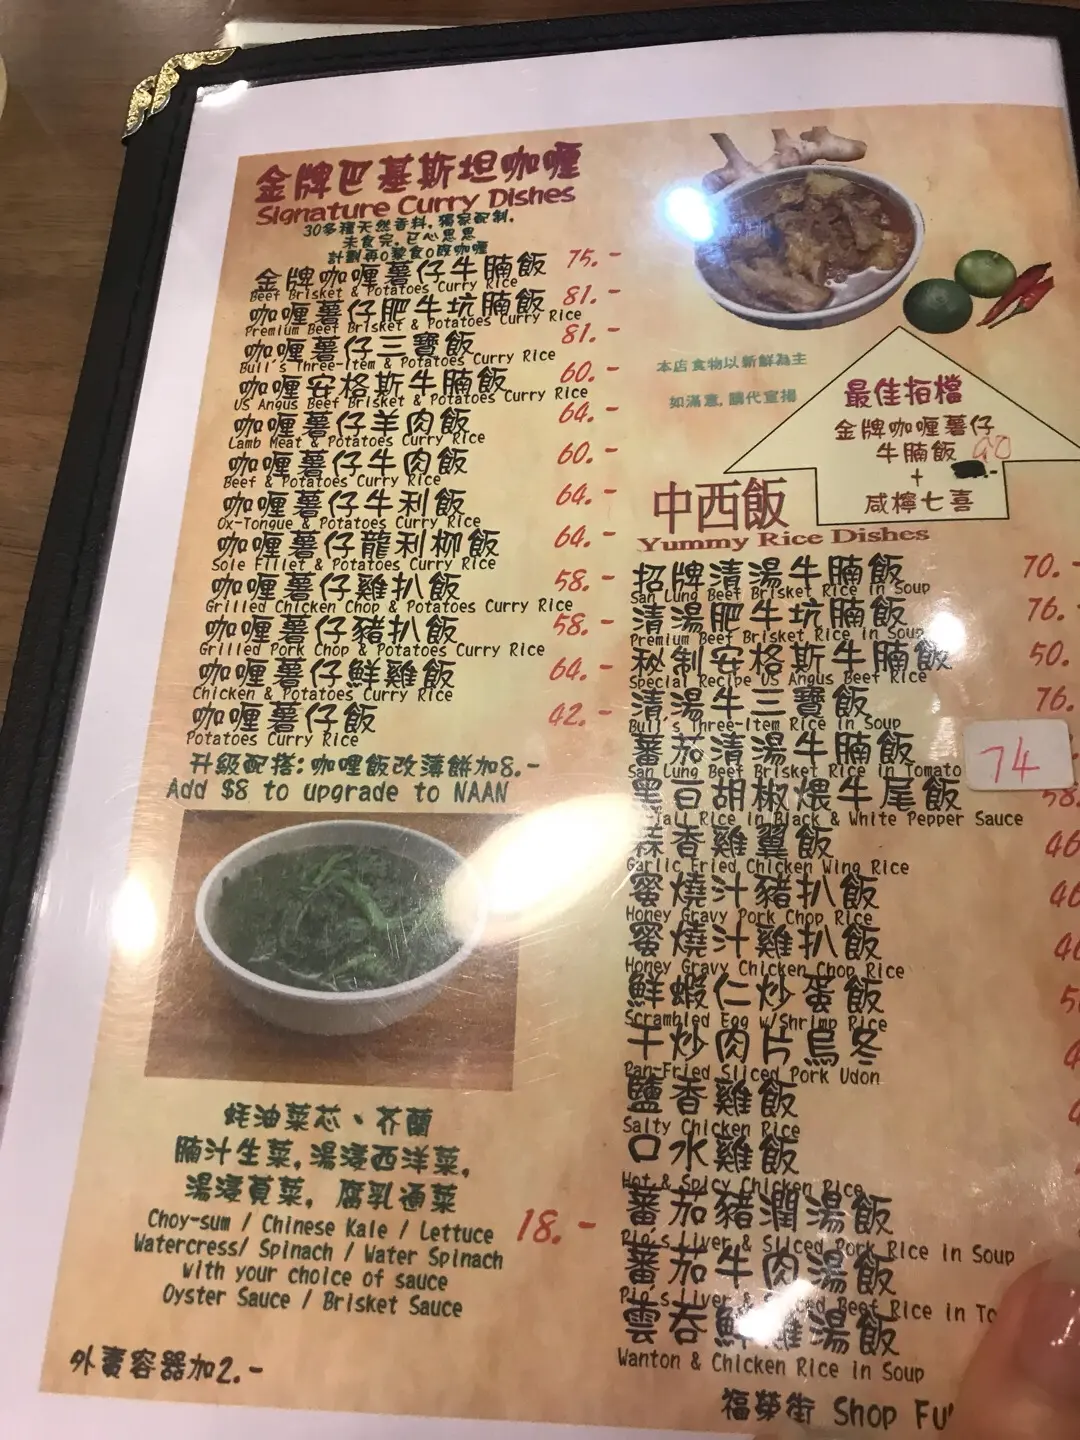 金牌巴基斯坦咖喱
Signature Curry Dishes
30多種天然香料, 獨家配制,
未食完, 已心思思
計劃再0黎食0既咖喱
金牌咖喱薯仔牛腩飯 75.-
Beef Brisket & Potatoes Curry Rice
咖喱薯仔肥牛坑腩飯 81.-
Premium Beef Brisket & Potatoes Curry Rice
咖喱薯仔三寶飯 81.-
Bull's Three-Item & Potatoes Curry Rice
咖喱安格斯牛腩飯 60.-
US Angus Beef Brisket & Potatoes Curry Rice
咖喱薯仔羊肉飯 64.-
Lamb Meat & Potatoes Curry Rice
咖喱薯仔牛肉飯 60.-
Beef & Potatoes Curry Rice
咖喱薯仔牛利飯 64.-
Ox-Tongue & Potatoes Curry Rice
咖喱薯仔龍利柳飯 64.-
Sole Fillet & Potatoes Curry Rice
咖喱薯仔雞扒飯 58.-
Grilled Chicken Chop & Potatoes Curry Rice
咖喱薯仔豬扒飯 58.-
Grilled Pork Chop & Potatoes Curry Rice
咖喱薯仔鮮雞飯 64.-
Chicken & Potatoes Curry Rice
咖喱薯仔飯 42.-
Potatoes Curry Rice
升級配搭:咖喱飯改薄餅加8.-
Add $8 to upgrade to NAAN
蚝油菜芯、芥蘭
腩汁生菜, 湯浸西洋菜,
湯浸莧菜, 腐乳通菜
Choy-sum / Chinese Kale / Lettuce 18.-
Watercress/ Spinach / Water Spinach
with your choice of sauce
Oyster Sauce / Brisket Sauce
外賣容器加2.-
本店食物以新鮮為主
如滿意, 請代宣揚
最佳拍檔
金牌咖喱薯仔
牛腩飯 90
+
咸檸七喜
中西飯
Yummy Rice Dishes
招牌清湯牛腩飯 70.-
San Lung Beef Brisket Rice in Soup
清湯肥牛坑腩飯 76.-
Premium Beef Brisket Rice in Soup
秘制安格斯牛腩飯 50.-
Special Recipe US Angus Beef Rice
清湯牛三寶飯 76.-
Bull's Three-Item Rice in Soup
蕃茄清湯牛腩飯 74
San Lung Beef Brisket Rice in Tomato
黑白胡椒煨牛尾飯 58.
Tail Rice in Black & White Pepper Sauce
蒜香雞翼飯 46
Garlic Fried Chicken Wing Rice
蜜燒汁豬扒飯 46
Honey Gravy Pork Chop Rice
蜜燒汁雞扒飯 46
Honey Gravy Chicken Chop Rice
鮮蝦仁炒蛋飯
Scrambled Egg w/Shrimp Rice
干炒肉片烏冬
Pan-Fried Sliced Pork Udon
鹽香雞飯
Salty Chicken Rice
口水雞飯
Hot & Spicy Chicken Rice
蕃茄豬潤湯飯
Pig's Liver & Sliced Pork Rice in Soup
蕃茄牛肉湯飯
Pig's Liver & Sliced Beef Rice in
雲吞鮮雞湯飯
Wanton & Chicken Rice in Soup
福榮街 Shop